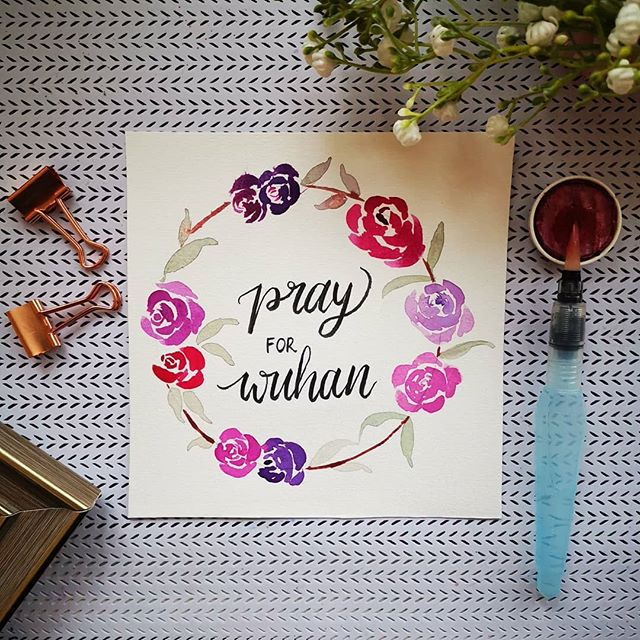 pray
FOR
wuhan